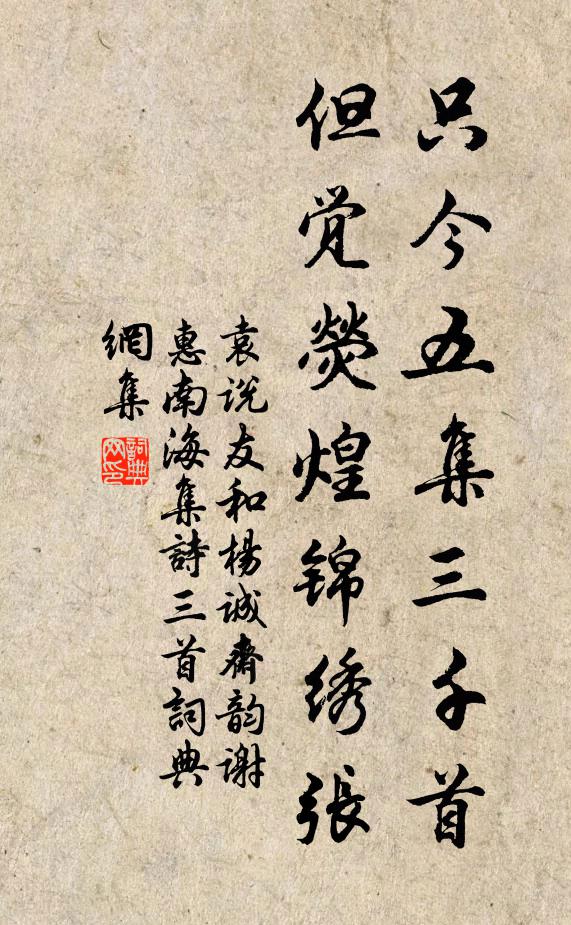 只今五集三千首
但觉熒煌锦绣張
袁说友和楊诚齋韵谢
惠南海集詩三首詞典
網集
詞典
网印